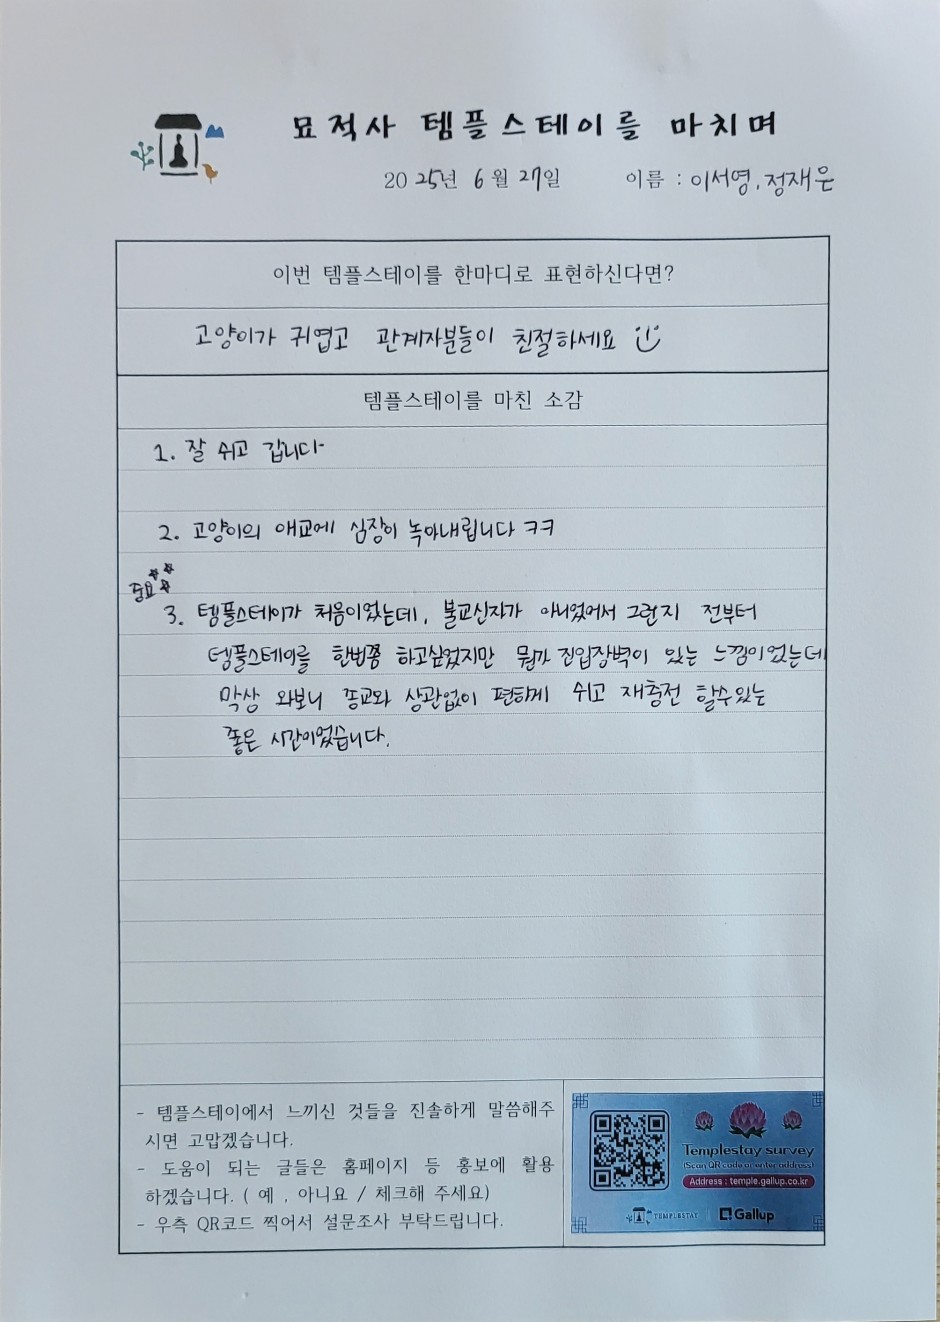 묘적사 템플스테이를 마치며
2025년 6월 27일 이름 : 이서영, 정재은
이번 템플스테이를 한마디로 표현하신다면?
고양이가 귀엽고 관계자분들이 친절하세요
템플스테이를 마친 소감
1. 잘 쉬고 갑니다
2. 고양이의 애교에 심장이 녹아내립니다 ㅋㅋ
중요
3. 템플스테이가 처음이었는데, 불교신자가 아니었어서 그런지 전부터
템플스테이를 한번쯤 하고싶었지만 뭔가 진입장벽이 있는 느낌이었는데
막상 와보니 종교와 상관없이 편하게 쉬고 재충전 할수있는
좋은 시간이었습니다.
- 템플스테이에서 느끼신 것들을 진솔하게 말씀해주
시면 고맙겠습니다.
- 도움이 되는 글들은 홈페이지 등 홍보에 활용
하겠습니다. ( 예 , 아니요 / 체크해 주세요)
- 우측 QR코드 찍어서 설문조사 부탁드립니다.
Templestay survey
(Scan QR code or enter address)
Address : temple.gallup.co.kr
TEMPLESTAY Gallup